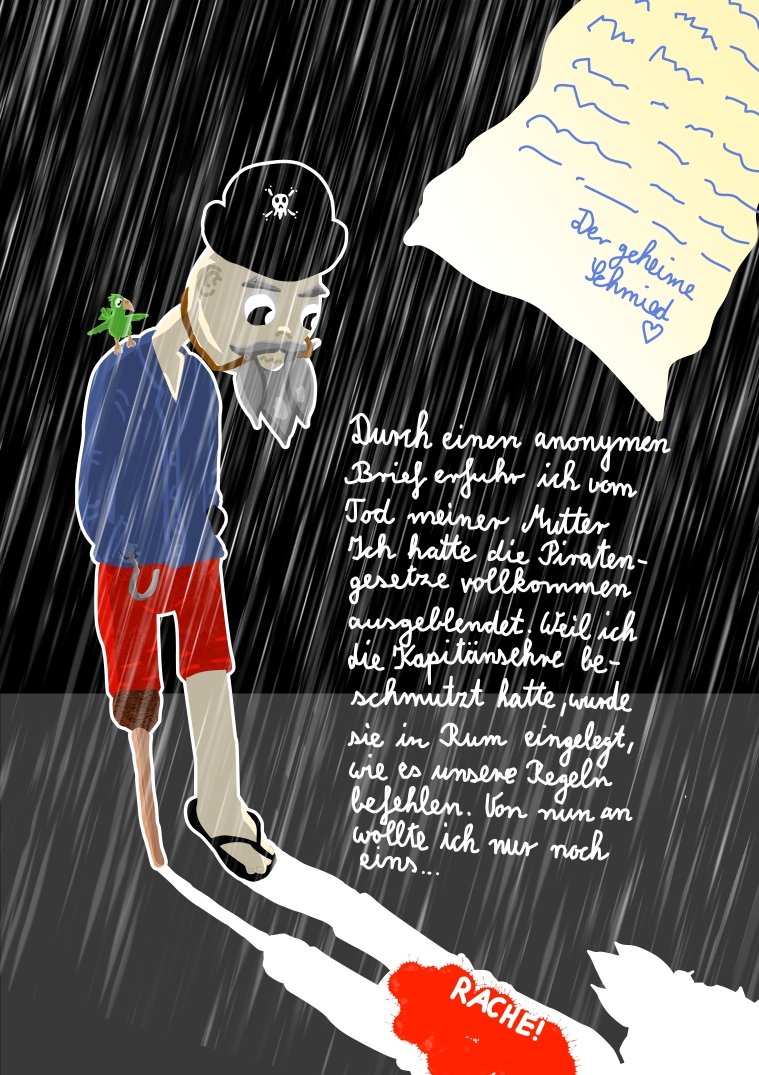 Der geheime
Schmied
Durch einen anonymen
Brief erfuhr ich vom
Tod meiner Mutter
Ich hatte die Piraten-
gesetze vollkommen
ausgeblendet. Weil ich
die Kapitänsehre be-
schmutzt hatte, wurde
sie in Rum eingelegt,
wie es unsere Regeln
befehlen. Von nun an
wollte ich nur noch
eins...
RACHE!